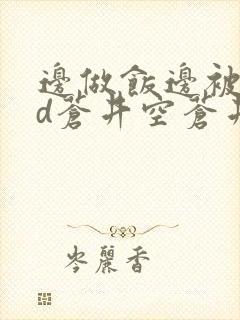 邊做飯邊被
d蒼井空蒼井
岑麗香